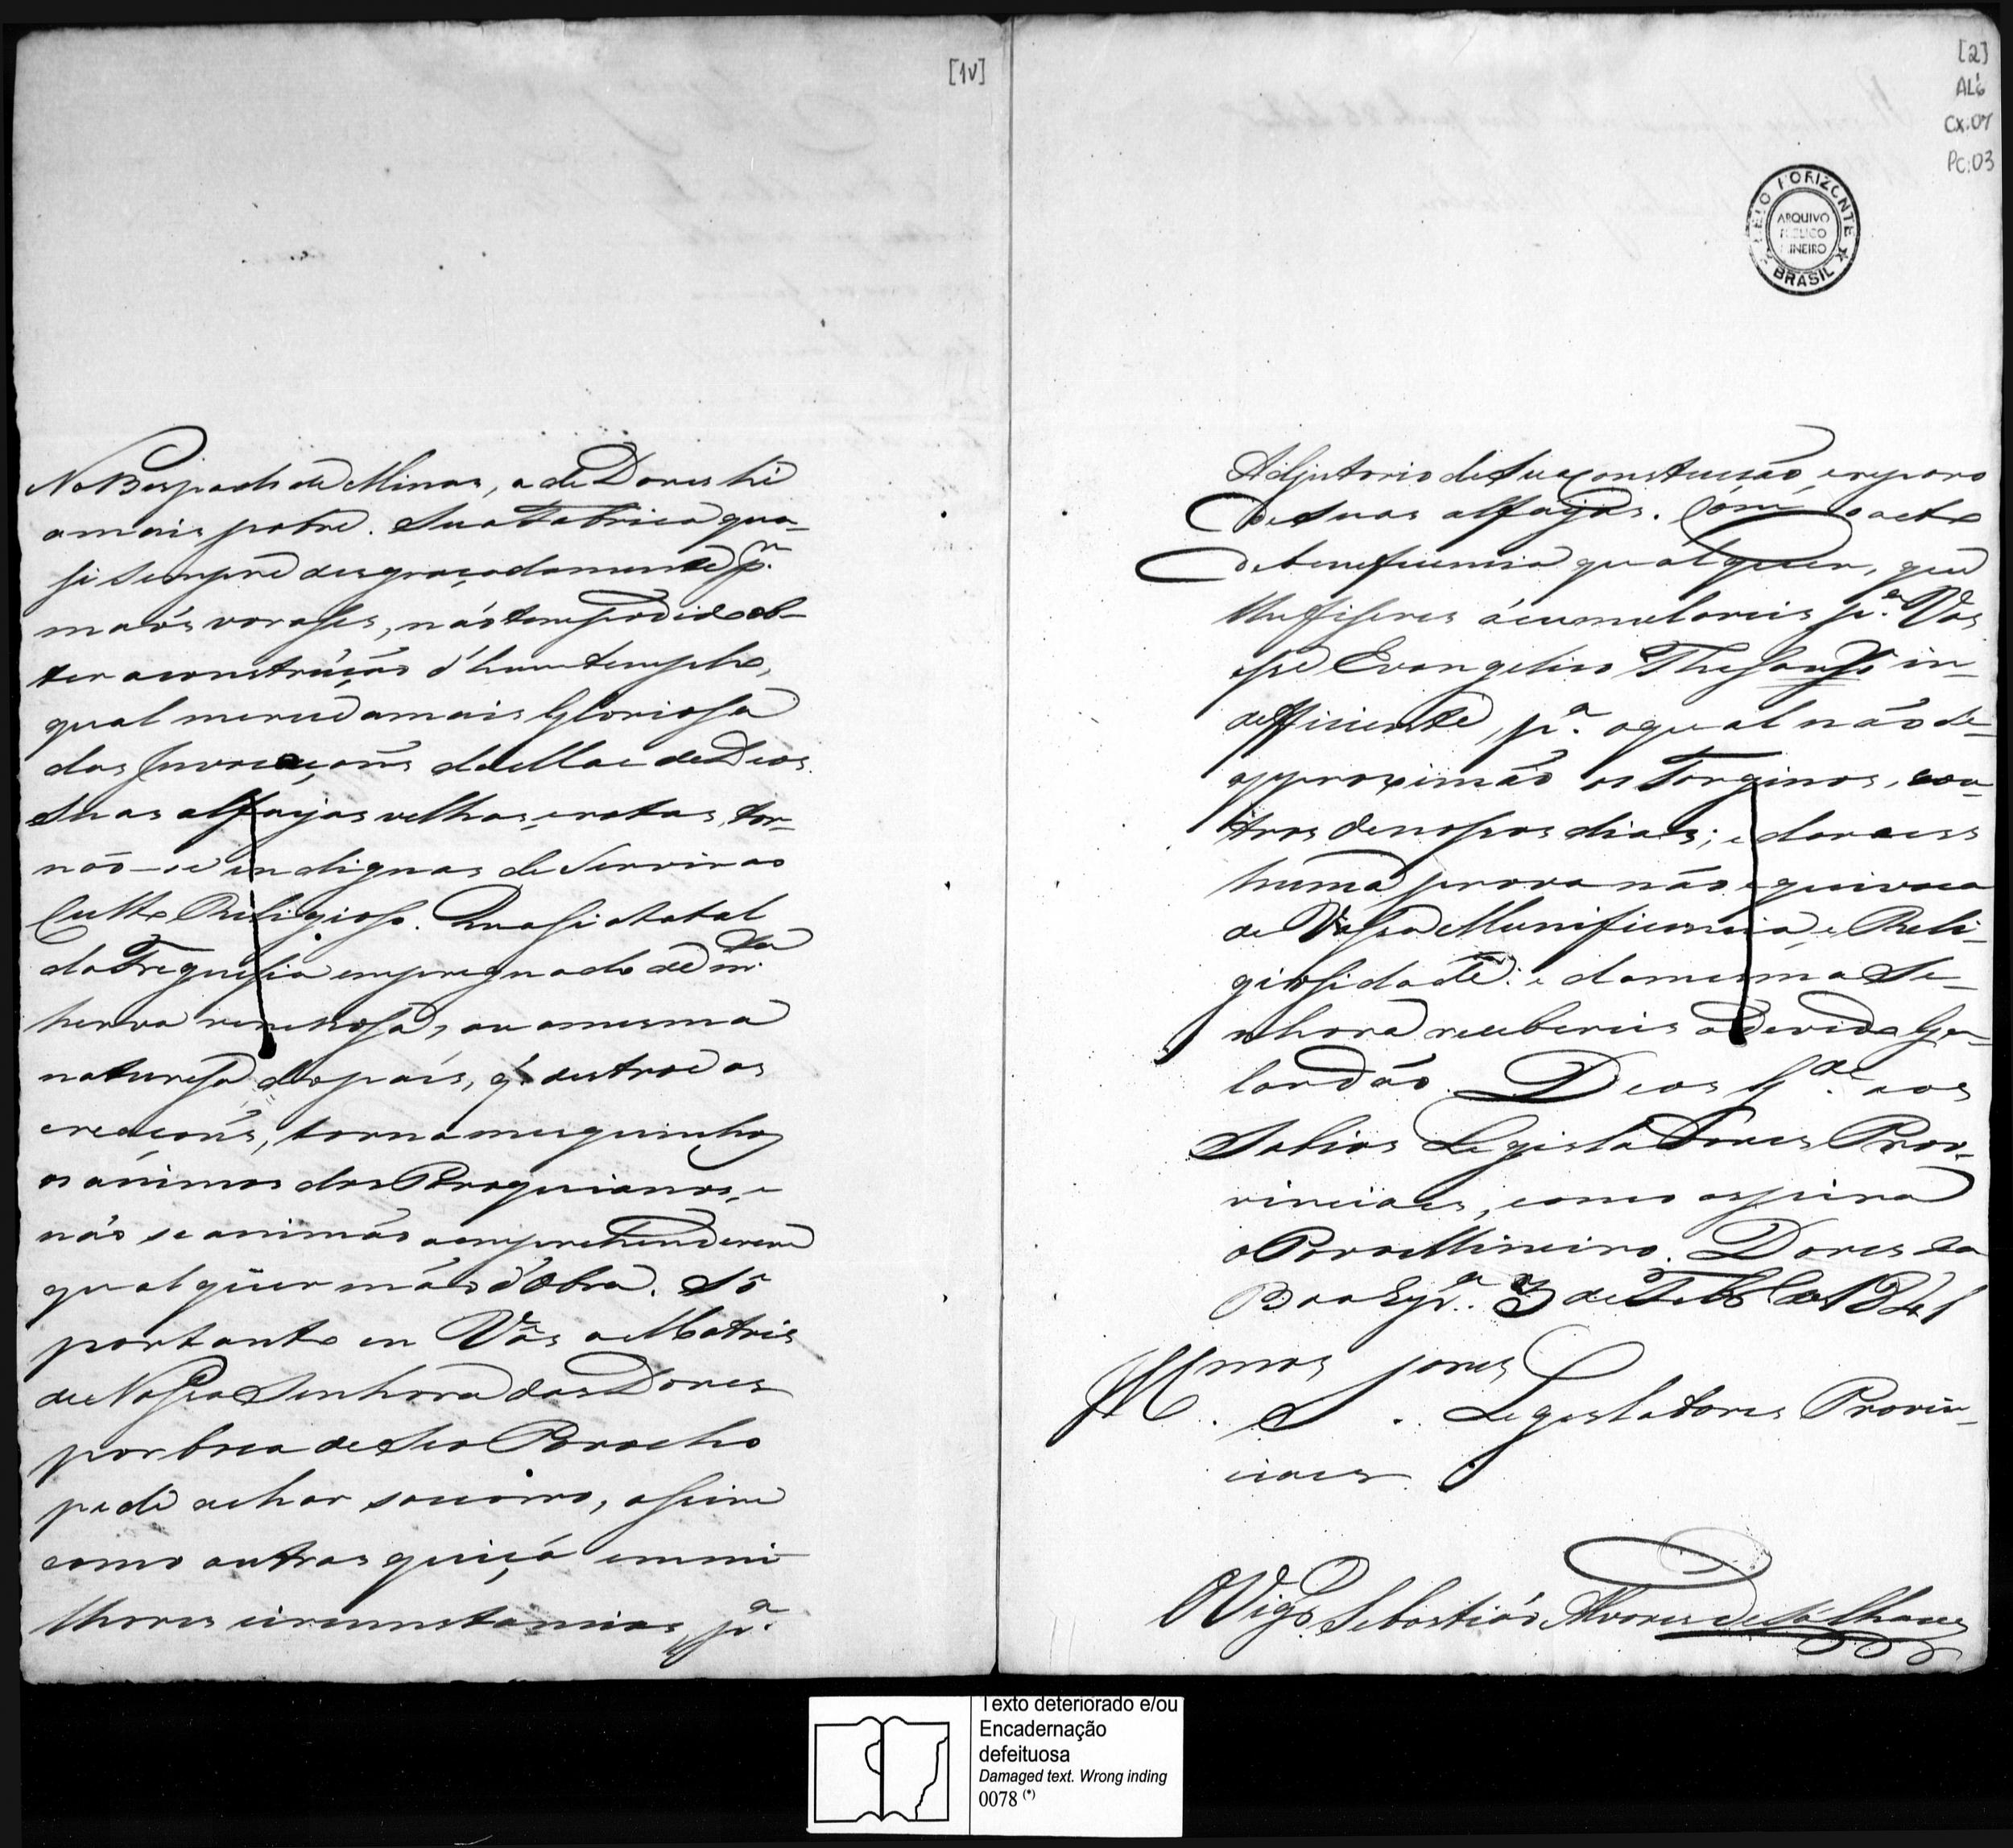 [1v]
No Bispado de Minas, a de Dores hé
a mais pobre. Sua Fabrica qua-
si sempre desgraçadamente p.r
maõs vorases, não tem podido ob-
ter a construção d'hum templo,
qual merece a mais Gloriosa
das Invocaçoñs da Mae de Deos.
Suas alfayas velhas, e rotas, tor-
não-se indignas de Servir ao
Culto Religioso. Quasi total
da Freguesia empregnado de
herva venenosa, ou a mesma
naturesa do pais, q' destroe as
creaçoñs, torna mesquinhos
os ánimos dos Paroquianos, e
não se animão a emprehenderem
qualquer mão d'Obra. Só
portanto en Vós a Matris
de Nossa Senhora das Dores
por boca de Seo Parocho
pede achar socorro, assim
como outras quiçá em mi-
lhores circunstancias, p.a
[2]
AL6
Cx.07
Pc:03
BELO HORIZONTE
ARQUIVO
PUBLICO
MINEIRO
BRASIL
Adjutorio de Sua Construcção, e reparo
de Suas alfayas. Com o acto
de beneficencia qualquer, que
lhe fiseres ácumulareis p.a Vós
esse Evangelico Thesouro in-
defficiente, p.a o qual não se
approximão os
tros de nossos dias; e dareis
huma prova não equivoca
de Vossa Munificencia, e Reli-
giosidade: e da mesma Se-
nhora recebereis o devido Ga-
lardão. Deos G.de aos
Sabios Legisladores Prov-
vinciaes, como aspira
o Povo Mineiro. Dores da
Boa Esp.a 3 de Febr.o de 1841
Illmos Snres
Legisladores Provin-
ciaes
O Vigr.o Sebastião Alvares de
Texto deteriorado e/ou
Encadernação
defeituosa
Damaged text. Wrong inding
0078 (*)